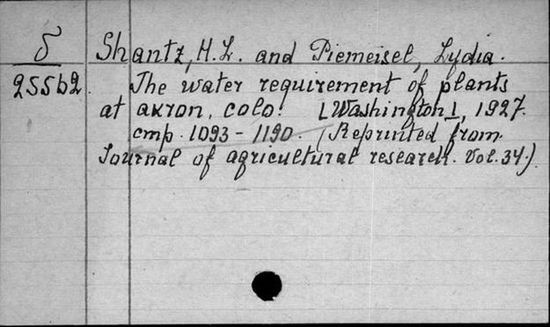 δ
25562
Shantz, H.L. and Piemeisel, Lydia.
The water requirement of plants
at akron, colo. [Washington], 1927.
cmp. 1093-1190. (Reprinted from
Journal of agricultural research. Vol. 34.)